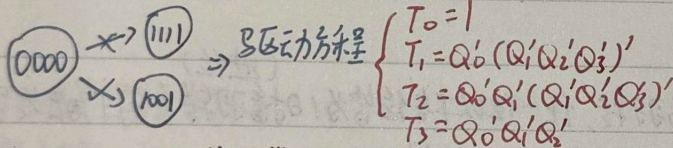 0000 → 1111
→ 1001
⇒ 驱动方程
T₀=1
T₁=Q₀'(Q₁'Q₂'Q₃')'
T₂=Q₀'Q₁'(Q₁'Q₂'Q₃')'
T₃=Q₀'Q₁'Q₂'